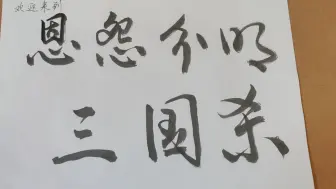 欢迎来到
恩怨分明
三国杀